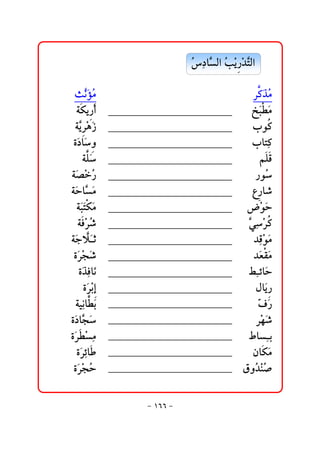 التَّدْرِيْبُ السَّادِسُ
مُذَكَّر مُؤَنَّث
مَطْبَخ ____________________ أَرِيكَة
كُوب ____________________ زَهْرِيَّة
كِتاب ____________________ وِسَادَة
قَلَم ____________________ سَلَّة
سُور ____________________ رُخْصَة
شارِع ____________________ مَسَّاحَة
حَوْض ____________________ مَكْتَبَة
كُرْسِيّ ____________________ شُرْفَة
مَوْقِد ____________________ ثَلَّاجَة
مَقْعَد ____________________ شَجْرَة
حَائِط ____________________ نَافِذَة
رِيَال ____________________ إِبْرَة
رَفّ ____________________ بَطَّانِية
شَهْر ____________________ سَجَّادَة
بِساط ____________________ مِسْطَرَة
مَكَان ____________________ طَائِرَة
صُنْدُوق ____________________ حُجْرَة
- ١٦٦ -